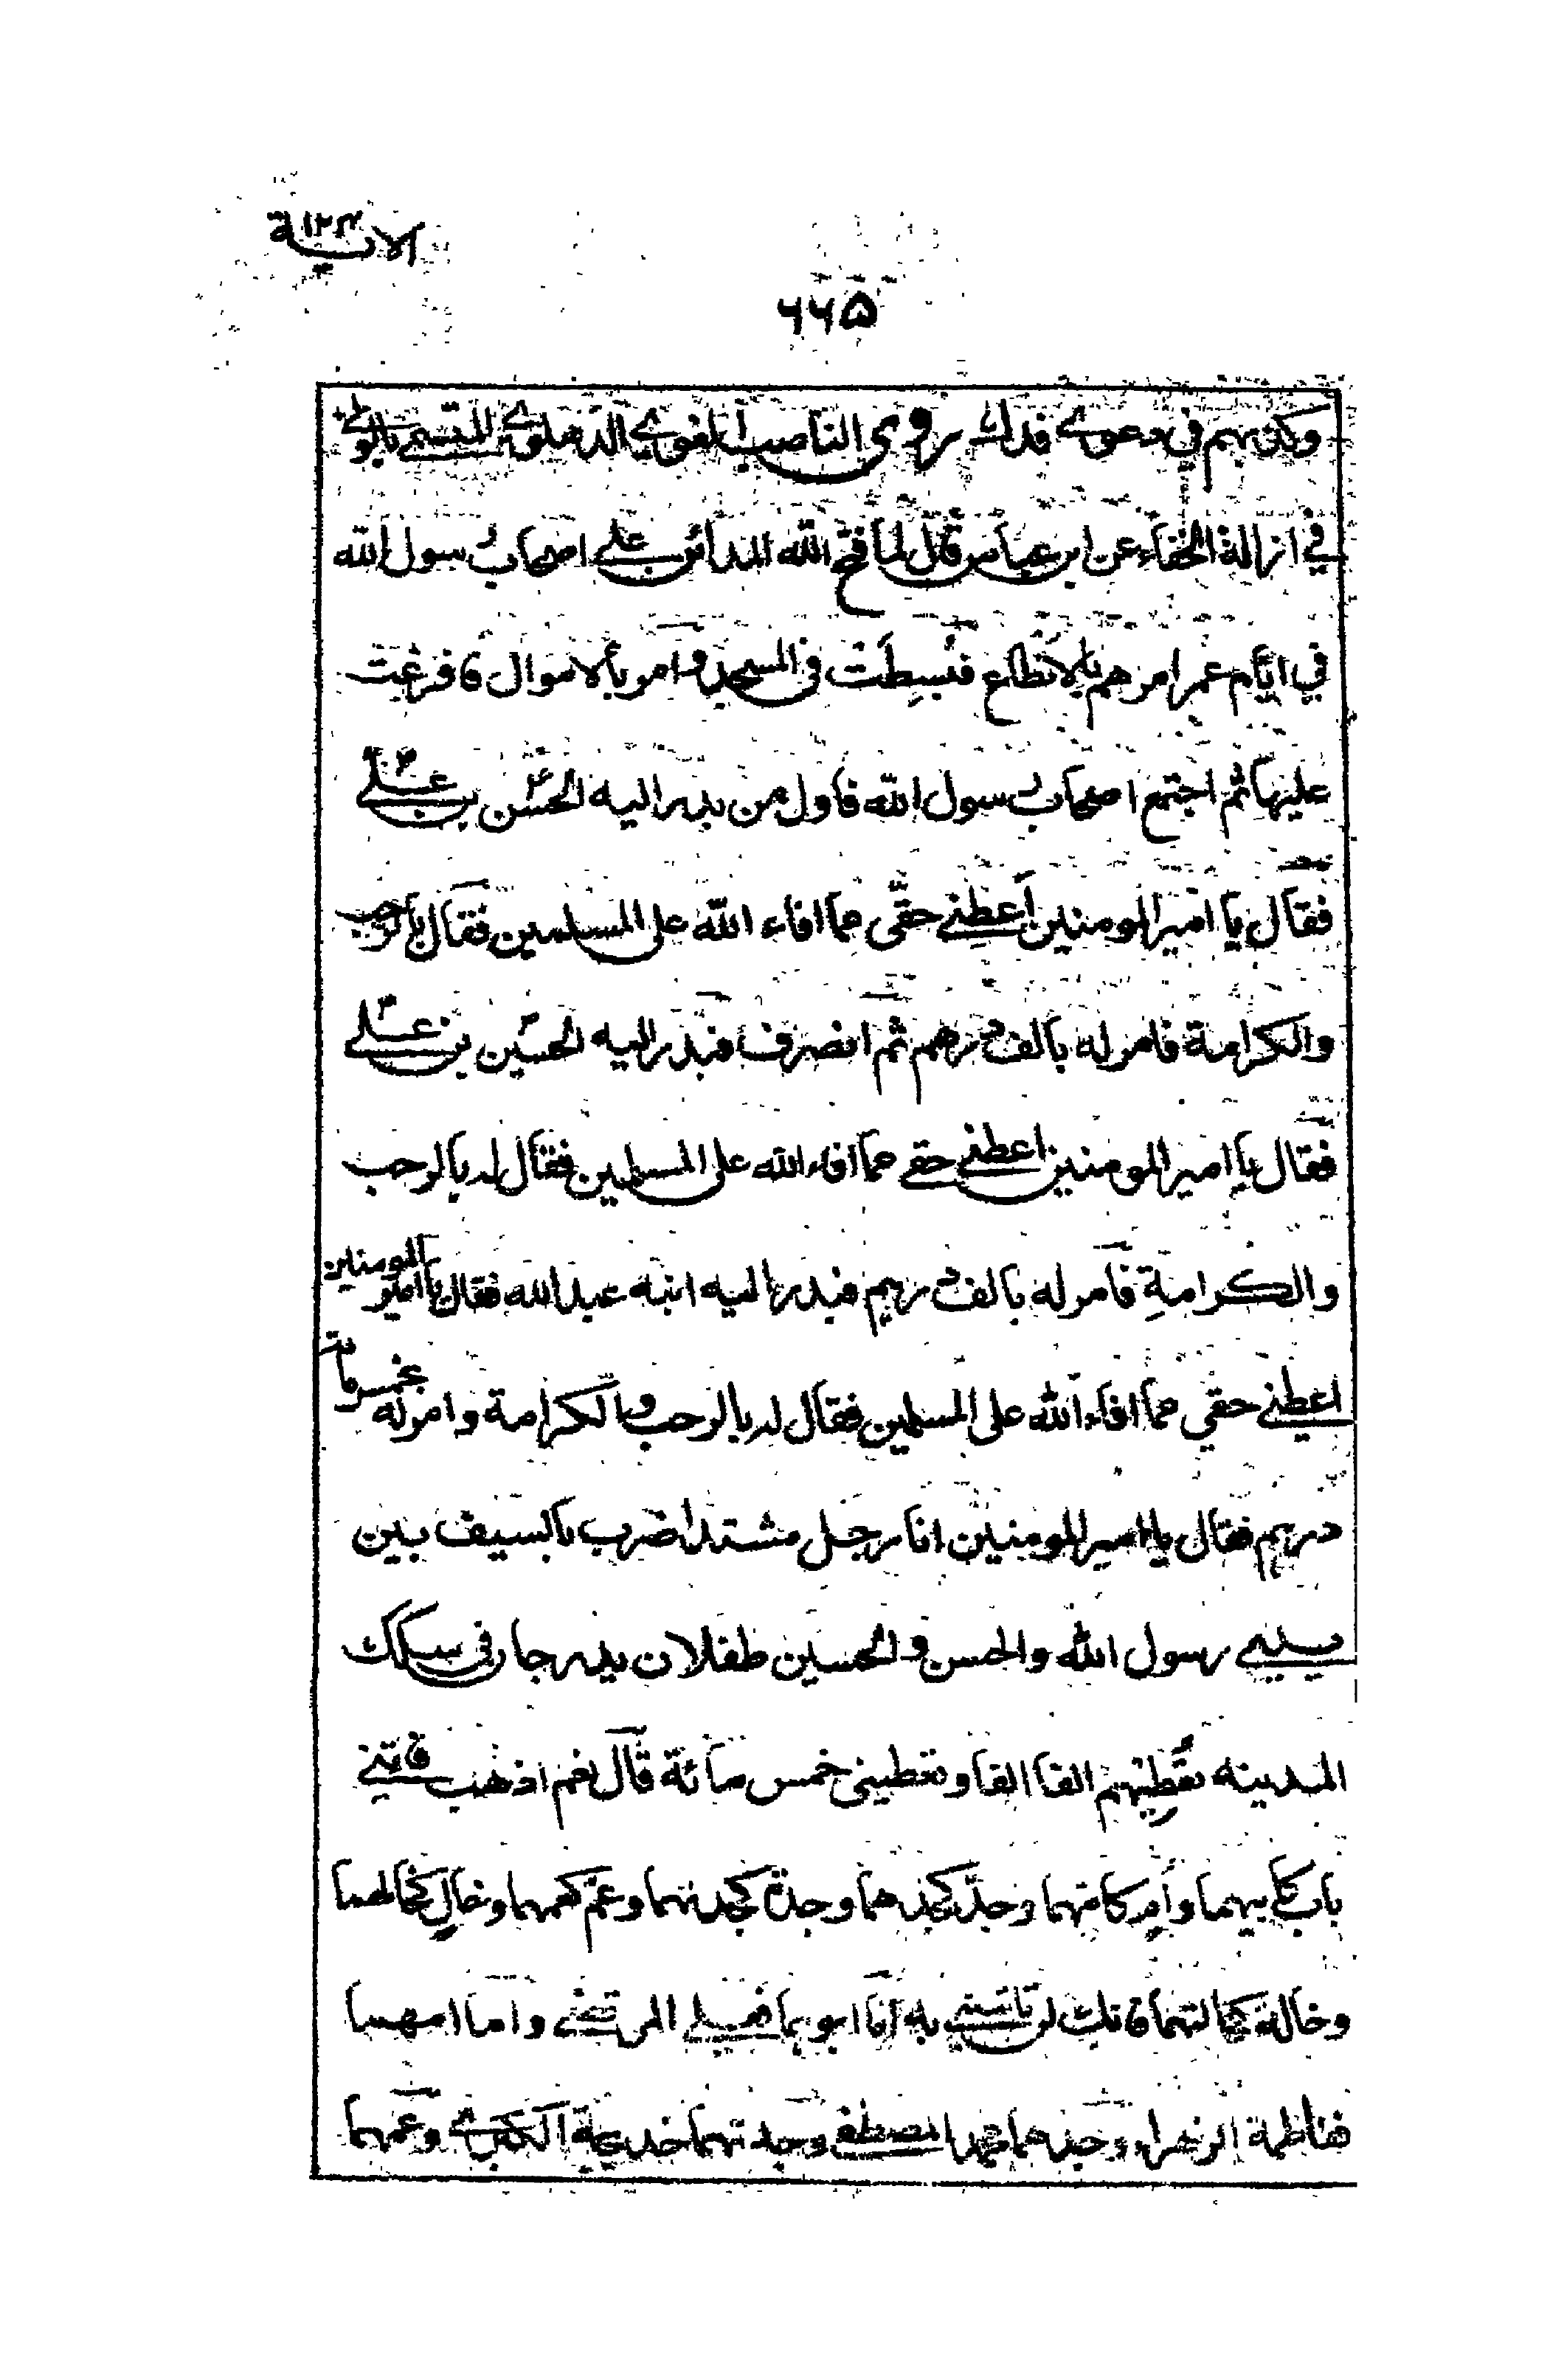 الآية ١٢٣
٦٦٥
وكذبهم في دعوى فدك روى الناصب الغوي الدهلوي المتسمى بالولي
في ازالة الخفاء عن ابن عباس قال لما فتح الله المدائن على اصحاب رسول الله
في ايّام عمر امرهم بالانطاع فبُسِطَت في المسجد وامر بالاموال فافرغت
عليها ثم اجتمع اصحاب رسول الله فاول من بدر اليه الحسن بن علي
فقال يا امير المومنين أعطِني حقّي مما افاء الله على المسلمين فقال بالرحب
والكرامة فامر له بالف درهم ثم انصرف فبدر اليه الحسين بن علي
فقال يا امير المومنين اعطني حقي مما افاء الله على المسلمين فقال له بالرحب
والكرامةِ فامر له بالف درهم فبدر اليه ابنه عبد الله فقال يا امير المومنين
اعطني حقي مما افاء الله على المسلمين فقال له بالرحب والكرامة وامر له بخمس مائة
درهم فقال يا امير المومنين انا رجل مشتد اضرب بالسيف بين
يدي رسول الله والحسن والحسين طفلان يدرجان في سكك
المدينه تعطيهم الفا الفا وتعطيني خمس مائة قال نعم اذهب فاتني
باب كابيهما وأم كامهما وجدّ كجدهما وجدة كجدتهما وعمّ كعمهما وخالٍ كخالهما
وخالة كخالتهما فانك لن تاتيني به اما ابوهما فعلي المرتضى واما امهما
ففاطمة الزهراء وجدهما محمد المصطفى وجدتهما خديجة الكبرى وعمهما